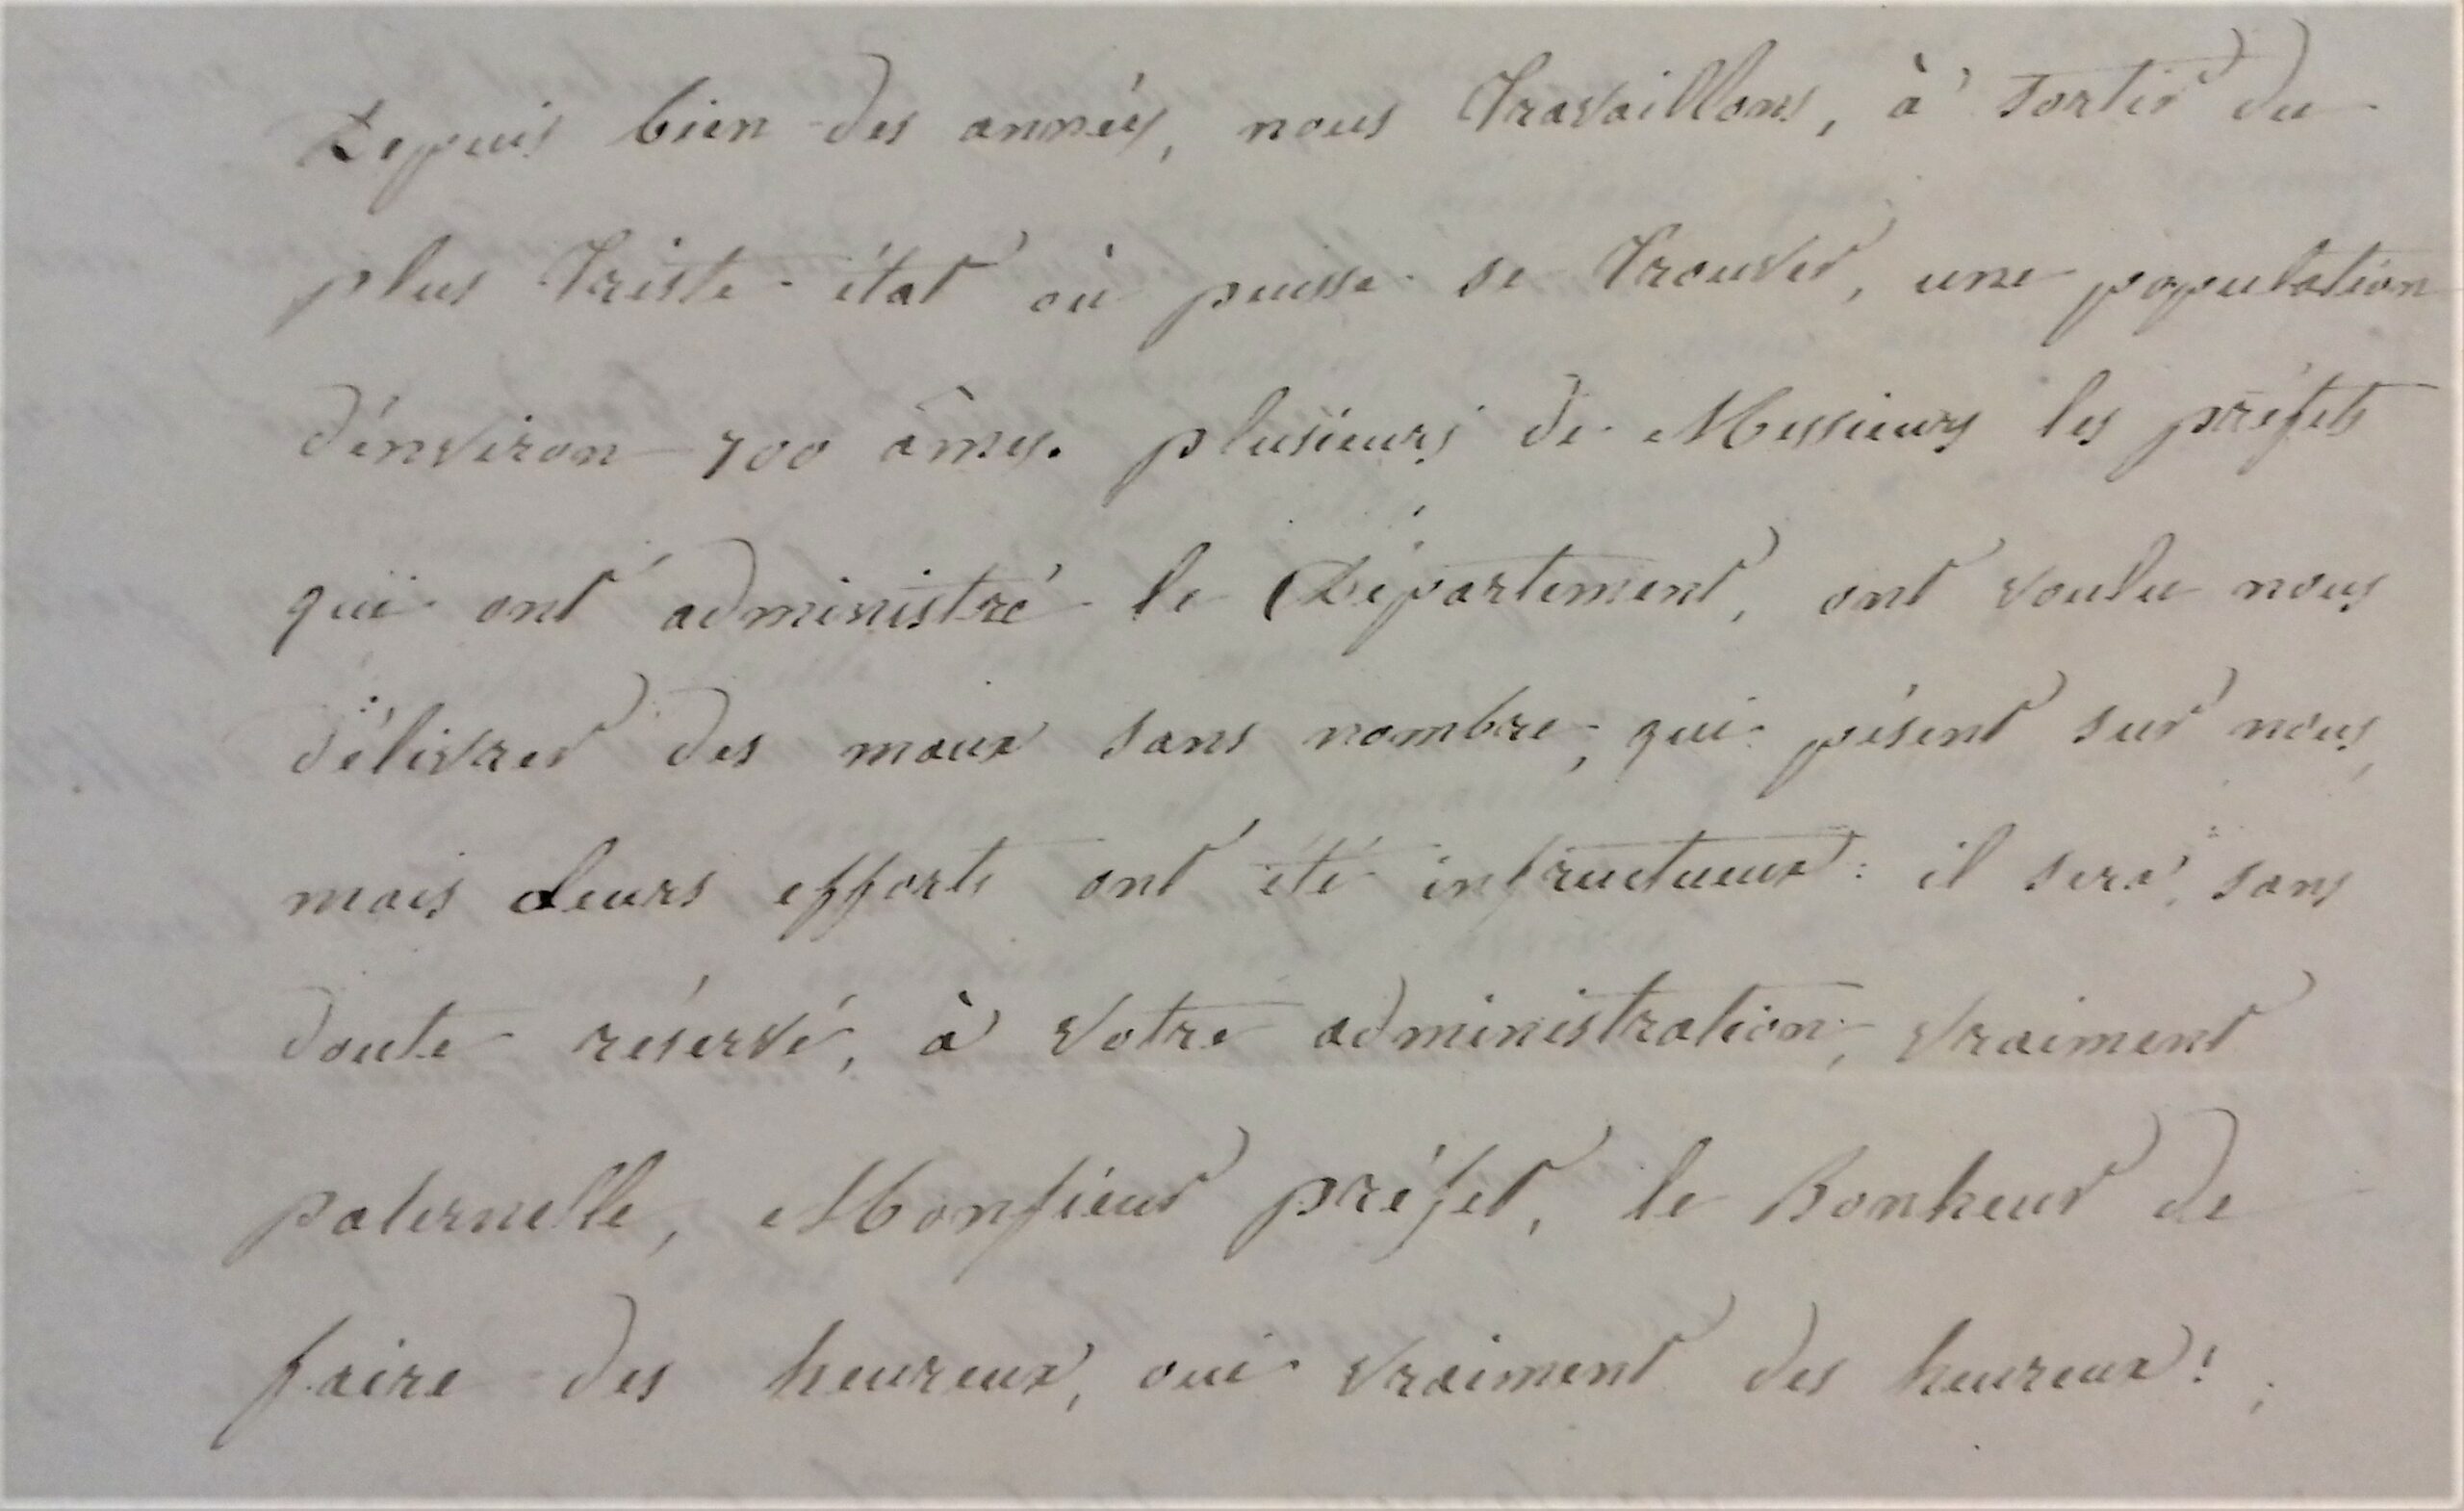 Depuis bien des années, nous travaillons, à sortir du
plus triste état où puisse se trouver, une population
d'énviron 700 âmes. plusieurs de Messieurs les préfets
qui ont administré le Département, ont voulu nous
délivrer des maux sans nombre, qui pèsent sur nous,
mais leurs efforts ont été infructueux : il sera, sans
doute réservé, à votre administration, vraiment
paternelle, Monsieur préfet, le Bonheur de
faire des heureux, oui vraiment des heureux! ;